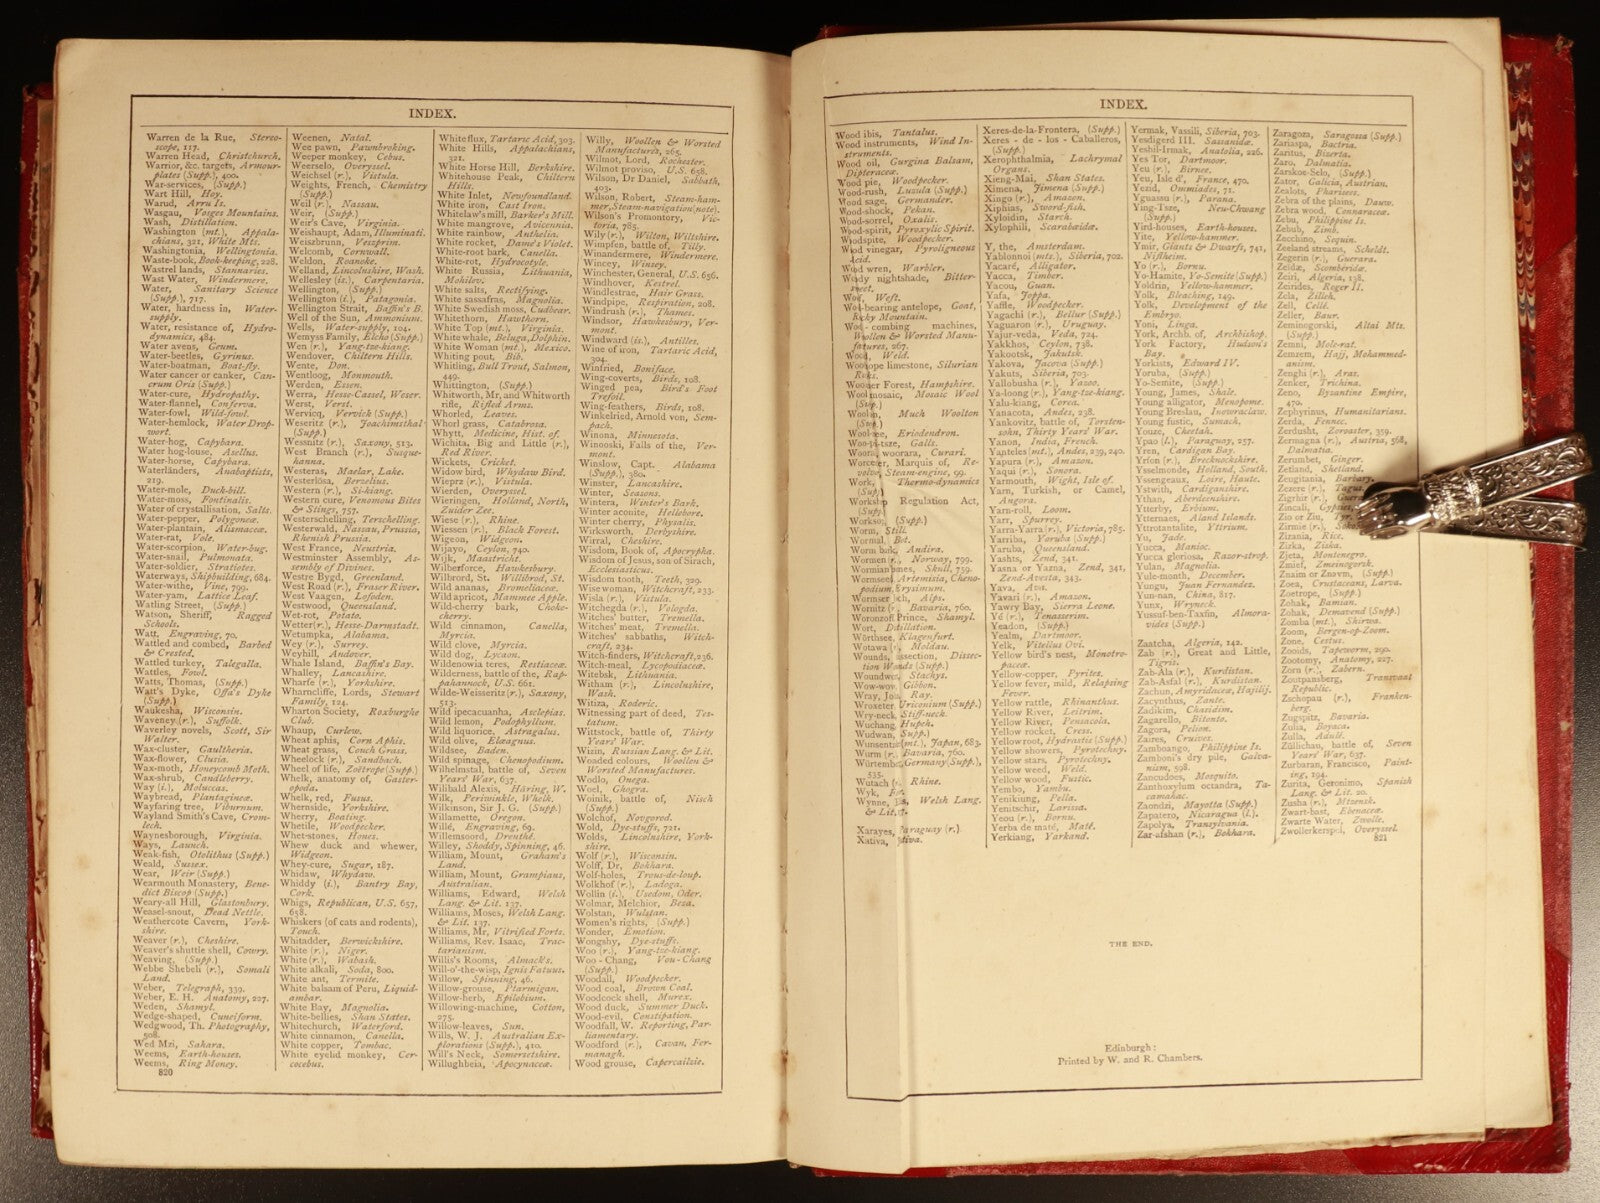 INDEX.
Warren de la Rue, Stereo-
scope, 117.
Warren Head, Christchurch.
Warrior, &c. targets, Armour-
plates (Supp.), 400.
War-services, (Supp.)
Wart Hill, Hey.
Warud, Arru Is.
Wasgau, Vosges Mountains.
Wash, Distillation.
Washington (mt.), Appala-
chians, 321, White Mts.
Washingtonia, Wellingtonia.
Waste-book, Book-keeping, 228.
Wastrel lands, Stannaries.
Wast Water, Windermere.
Water, Sanitary Science
(Supp.), 717.
Water, hardness in, Water-
supply.
Water, resistance of, Hydro-
dynamics, 484.
Water avens, Geum.
Water-beetles, Gyrinus.
Water-boatman, Boat-fly.
Water cancer or canker, Can-
crum Oris (Supp.)
Water-cure, Hydropathy.
Water-flannel, Conferva.
Water-fowl, Wild-fowl.
Water-hemlock, Water Drop-
wort.
Water-hog, Capybara.
Water hog-louse, Asellus.
Water-horse, Capybara.
Waterländers, Anabaptists,
219.
Water-mole, Duck-bill.
Water-moss, Fontinalis.
Water of crystallisation, Salts.
Water-pepper, Polygoneæ.
Water-plantain, Alismaceæ.
Water-rat, Vole.
Water-scorpion, Water-bug.
Water-snail, Pulmonata.
Water-soldier, Stratiotes.
Waterways, Shipbuilding, 684.
Water-withe, Vine, 799.
Water-yam, Lattice Leaf.
Watling Street, (Supp.)
Watson, Sheriff, Ragged
Schools.
Watt, Engraving, 70.
Wattled and combed, Barbed
& Crested.
Wattled turkey, Talegalla.
Wattles, Fowl.
Watts, Thomas, (Supp.)
Watt's Dyke, Offa's Dyke
(Supp.)
Waukesha, Wisconsin.
Waveney (r.), Suffolk.
Waverley novels, Scott, Sir
Walter.
Wax-cluster, Gaultheria.
Wax-flower, Clusia.
Wax-moth, Honeycomb Moth.
Wax-shrub, Candleberry.
Way (i.), Moluccas.
Waybread, Plantagineæ.
Wayfaring tree, Viburnum.
Wayland Smith's Cave, Crom-
lech.
Waynesborough, Virginia.
Ways, Launch.
Weak-fish, Otolithus (Supp.)
Weald, Sussex.
Wear, Weir (Supp.)
Wearmouth Monastery, Bene-
dict Biscop (Supp.)
Weary-all Hill, Glastonbury.
Weasel-snout, Dead Nettle.
Weathercote Cavern, York-
shire.
Weaver (r.), Cheshire.
Weaver's shuttle shell, Cowry.
Weaving, (Supp.)
Webbe Shebeli (r.), Somali
Land.
Weber, Telegraph, 339.
Weber, E. H. Anatomy, 227.
Weden, Shamyl.
Wedge-shaped, Cuneiform.
Wedgwood, Th. Photography,
508.
Wed Mzi, Sahara.
Weems, Earth-houses.
Weems, Ring Money.
820
Weenen, Natal.
Wee pawn, Pawnbroking.
Weeper monkey, Cebus.
Weerselo, Overyssel.
Weichsel (r.), Vistula.
Weights, French, Chemistry
(Supp.)
Weil (r.), Nassau.
Weir, (Supp.)
Weir's Cave, Virginia.
Weishaupt, Adam, Illuminati.
Weiszbrunn, Veszprim.
Welcomb, Cornwall.
Weldon, Roanoke.
Welland, Lincolnshire, Wash.
Wellesley (is.), Carpentaria.
Wellington, (Supp.)
Wellington (i.), Patagonia.
Wellington Strait, Baffin's B.
Well of the Sun, Ammonium.
Wells, Water-supply, 104.
Wemyss Family, Elcho (Supp.)
Wen (r.), Yang-tze-kiang.
Wendover, Chiltern Hills.
Wente, Don.
Wentloog, Monmouth.
Werden, Essen.
Werra, Hesse-Cassel, Weser.
Werst, Verst.
Wervicq, Vervick (Supp.)
Weseritz (r.), Joachimsthal
(Supp.)
Wessnitz (r.), Saxony, 513.
West Branch (r.), Susque-
hanna.
Westeras, Maelar, Lake.
Westerlösa, Berzelius.
Western (r.), Si-kiang.
Western cure, Venomous Bites
& Stings, 757.
Westerschelling, Terschelling.
Westerwald, Nassau, Prussia,
Rhenish Prussia.
West France, Neustria.
Westminster Assembly, As-
sembly of Divines.
Westre Bygd, Greenland.
West Road (r.), Fraser River.
West Vaagen, Lofoden.
Westwood, Queensland.
Wet-rot, Potato.
Wetter(r.), Hesse-Darmstadt.
Wetumpka, Alabama.
Wey (r.), Surrey.
Weyhill, Andover.
Whale Island, Baffin's Bay.
Whalley, Lancashire.
Wharfe (r.), Yorkshire.
Wharncliffe, Lords, Stewart
Family, 124.
Wharton Society, Roxburghe
Club.
Whaup, Curlew.
Wheat aphis, Corn Aphis.
Wheat grass, Couch Grass.
Wheelock (r.), Sandbach.
Wheel of life, Zoëtrope (Supp.)
Whelk, anatomy of, Gaster-
opoda.
Whelk, red, Fusus.
Whernside, Yorkshire.
Wherry, Boating.
Whetile, Woodpecker.
Whet-stones, Hones.
Whew duck and whewer,
Widgeon.
Whey-cure, Sugar, 187.
Whidaw, Whydaw.
Whiddy (i.), Bantry Bay,
Cork.
Whigs, Republican, U.S. 657,
658.
Whiskers (of cats and rodents),
Touch.
Whitadder, Berwickshire.
White (r.), Niger.
White (r.), Wabash.
White alkali, Soda, 800.
White ant, Termite.
White balsam of Peru, Liquid-
ambar.
White Bay, Magnolia.
White-bellies, Shan States.
Whitechurch, Waterford.
White cinnamon, Canella.
White copper, Tombac.
White eyelid monkey, Cer-
cocebus.
White flux, Tartaric Acid, 303.
White Hills, Appalachians,
321.
White Horse Hill, Berkshire.
Whitehouse Peak, Chiltern
Hills.
White Inlet, Newfoundland.
White iron, Cast Iron.
Whitelaw's mill, Barker's Mill.
White mangrove, Avicennia.
White rainbow, Anthelia.
White rocket, Dame's Violet.
White-root bark, Canella.
White-rot, Hydrocotyle.
White Russia, Lithuania,
Mohilev.
White salts, Rectifying.
White sassafras, Magnolia.
White Swedish moss, Cudbear.
Whitethorn, Hawthorn.
White Top (mt.), Virginia.
White whale, Beluga, Dolphin.
White Woman (mt.), Mexico.
Whiting pout, Bib.
Whitling, Bull Trout, Salmon,
449.
Whittington, (Supp.)
Whitworth, Mr, and Whitworth
rifle, Rifled Arms.
Whorled, Leaves.
Whorl grass, Catabrosa.
Whytt, Medicine, Hist. of.
Wichita, Big and Little (r.),
Red River.
Wickets, Cricket.
Widow bird, Whydaw Bird.
Wieprz (r.), Vistula.
Wierden, Overyssel.
Wieringen, Holland, North,
Zuider Zee.
Wiese (r.), Rhine.
Wiessen (r.), Black Forest.
Wigeon, Widgeon.
Wijayo, Ceylon, 740.
Wijk, Maastricht.
Wilberforce, Hawkesbury.
Wilbrord, St. Willibrod, St.
Wild ananas, Bromeliaceæ.
Wild apricot, Mammee Apple.
Wild-cherry bark, Choke-
cherry.
Wild cinnamon, Canella,
Myrcia.
Wild clove, Myrcia.
Wild dog, Lycaon.
Wildenowia teres, Restiaceæ.
Wilderness, battle of the, Rap-
pahannock, U.S. 661.
Wilde-Weisseritz (r.), Saxony,
513.
Wild ipecacuanha, Asclepias.
Wild lemon, Podophyllum.
Wild liquorice, Astragalus.
Wild olive, Elæagnus.
Wildsee, Baden.
Wild spinage, Chenopodium.
Wilhelmstal, battle of, Seven
Years' War, 637.
Wilibald Alexis, Häring, W.
Wilk, Periwinkle, Whelk.
Wilkinson, Sir J. G. (Supp.)
Willamette, Oregon.
Wille, Engraving, 69.
Willemsoord, Drenthe.
Willey, Shoddy, Spinning, 46.
William, Mount, Graham's
Land.
William, Mount, Grampians,
Australian.
Williams, Edward, Welsh
Lang. & Lit. 137.
Williams, Moses, Welsh Lang.
& Lit. 137.
Williams, Mr, Vitrified Forts.
Williams, Rev. Isaac, Trac-
tarianism.
Willis's Rooms, Almack's.
Will-o'-the-wisp, Ignis Fatuus.
Willow, Spinning, 46.
Willow-grouse, Ptarmigan.
Willow-herb, Epilobium.
Willowing-machine, Cotton,
275.
Willow-leaves, Sun.
Wills, W. J. Australian Ex-
plorations (Supp.), 410.
Will's Neck, Somersetshire.
Willughbeia, Apocynaceæ.
Willy, Woollen & Worsted
Manufactures, 265.
Wilmot, Lord, Rochester.
Wilmot proviso, U.S. 658.
Wilson, Dr Daniel, Sabbath,
403.
Wilson, Robert, Steam-ham-
mer, Steam-navigation (note).
Wilson's Promontory, Vic-
toria, 785.
Wily (r.), Wilton, Wiltshire.
Wimpfen, battle of, Tilly.
Winandermere, Windermere.
Wincey, Winsey.
Winchester, General, U.S. 656.
Windhover, Kestrel.
Windlestrae, Hair Grass.
Windpipe, Respiration, 208.
Windrush (r.), Thames.
Windsor, Hawkesbury, Ver-
mont.
Windward (is.), Antilles.
Wine of iron, Tartaric Acid,
304.
Winfried, Boniface.
Wing-coverts, Birds, 108.
Winged pea, Bird's Foot
Trefoil.
Wing-feathers, Birds, 108.
Winkelried, Arnold von, Sem-
pach.
Winona, Minnesota.
Winooski, Falls of the, Ver-
mont.
Winslow, Capt. Alabama
(Supp.), 380.
Winster, Lancashire.
Winter, Seasons.
Wintera, Winter's Bark.
Winter aconite, Hellebore.
Winter cherry, Physalis.
Wirksworth, Derbyshire.
Wirral, Cheshire.
Wisdom, Book of, Apocrypha.
Wisdom of Jesus, son of Sirach,
Ecclesiasticus.
Wisdom tooth, Teeth, 329.
Wise woman, Witchcraft, 233.
Wisla (r.), Vistula.
Witchegda (r.), Vologda.
Witches' butter, Tremella.
Witches' meat, Tremella.
Witches' sabbaths, Witch-
craft, 234.
Witch-finders, Witchcraft, 236.
Witch-meal, Lycopodiaceæ.
Witebsk, Lithuania.
Witham (r.), Lincolnshire,
Wash.
Witiza, Roderic.
Witnessing part of deed, Tes-
tatum.
Wittstock, battle of, Thirty
Years' War.
Wizin, Russian Lang. & Lit.
Woaded colours, Woollen &
Worsted Manufactures.
Wodlo, Onega.
Woel, Ghogra.
Woinik, battle of, Nisch
(Supp.)
Wolchof, Novgorod.
Wold, Dye-stuffs, 721.
Wolds, Lincolnshire, York-
shire.
Wolf (r.), Wisconsin.
Wolff, Dr, Bokhara.
Wolf-holes, Trous-de-loup.
Wolkhof (r.), Ladoga.
Wollin (i.), Usedom, Oder.
Wolmar, Melchior, Beza.
Wolstan, Wulstan.
Women's rights, (Supp.)
Wonder, Emotion.
Wongshy, Dye-stuffs.
Woo (r.), Yang-tze-kiang.
Woo-Chang, Vou-Chang
(Supp.)
Woodall, Woodpecker.
Wood coal, Brown Coal.
Woodcock shell, Murex.
Wood duck, Summer Duck.
Wood-evil, Constipation.
Woodfall, W. Reporting, Par-
liamentary.
Woodford (r.), Cavan, Fer-
managh.
Wood grouse, Capercailzie.
INDEX.
Wood ibis, Tantalus.
Wood instruments, Wind In-
struments.
Wood oil, Gurgina Balsam,
Dipteraceæ.
Wood pie, Woodpecker.
Wood-rush, Luzula (Supp.)
Wood sage, Germander.
Wood-shock, Pekan.
Wood-sorrel, Oxalis.
Wood-spirit, Pyroxylic Spirit.
Woodspite, Woodpecker.
Wood vinegar, Pyroligneous
Acid.
Wood wren, Warbler.
Woody nightshade, Bitter-
sweet.
Woof, Weft.
Wool-bearing antelope, Goat,
Rocky Mountain.
Wool-combing machines,
Woollen & Worsted Manu-
factures, 267.
Woold, Weld.
Woolhope limestone, Silurian
Rocks.
Woolmer Forest, Hampshire.
Wool mosaic, Mosaic Wool
(Supp.)
Woolton, Much Woolton
(Supp.)
Wool-tree, Eriodendron.
Galls.
Woorali, woorara, Curari.
Worcester, Marquis of, Re-
volver, Steam-engine, 99.
Work, Thermo-dynamics
(Supp.)
Workshop Regulation Act,
(Supp.)
Worksop, (Supp.)
Worm, Still.
Wormal, Bot.
Worm bark, Andira.
Wormen (r.), Norway, 799.
Wormian bones, Skull, 759.
Wormseed, Artemisia, Cheno-
podium, Erysimum.
Alps.
Wornitz (r.), Bavaria, 760.
Woronzoff, Prince, Shamyl.
Wort, Distillation.
Wörthsee, Klagenfurt.
Wotawa (r.), Moldau.
Wounds, dissection, Dissec-
tion Wounds (Supp.)
Woundwort, Stachys.
Wow-wow, Gibbon.
Wray, John, Ray.
Wroxeter, Uriconium (Supp.)
Wry-neck, Stiff-neck.
Wuchang, Hupeh.
Wudwan, (Supp.)
(mt.), Japan, 683.
Wurm (r.), Bavaria, 760.
Würtemberg, Germany (Supp.),
535.
Wutach (r.), Rhine.
Wyk,
Wynne, Welsh Lang.
& Lit.
Xarayes, Paraguay (r.).
Xativa, Jativa.
Xeres-de-la-Frontera, (Supp.)
Xeres-de-los-Caballeros,
(Supp.)
Xerophthalmia, Lachrymal
Organs.
Xieng-Mai, Shan States.
Ximena, Jimena (Supp.)
Xingo (r.), Amazon.
Xiphias, Sword-fish.
Xyloidin, Starch.
Xylophili, Scarabæidæ.
Y, the, Amsterdam.
Yablonnoi (mts.), Siberia, 702.
Yacaré, Alligator.
Yacca, Timber.
Yacou, Guan.
Yafa, Joppa.
Yaffle, Woodpecker.
Yagachi (r.), Bellur (Supp.)
Yaguaron (r.), Uruguay.
Yajur-veda, Veda, 724.
Yakkhos, Ceylon, 738.
Yakootsk, Jakutsk.
Yakova, Jacova (Supp.)
Yakuts, Siberia, 703.
Yallobusha (r.), Yazoo.
Ya-loong (r.), Yang-tze-kiang.
Yalu-kiang, Corea.
Yanacota, Andes, 238.
Yankovitz, battle of, Torsten-
sohn, Thirty Years' War.
Yanon, India, French.
Yanteles (mt.), Andes, 239, 240.
Yapura (r.), Amazon.
Yaqui (r.), Sonora.
Yarmouth, Wight, Isle of.
Yarn, Turkish, or Camel,
Angora.
Yarn-roll, Loom.
Yarr, Spurrey.
Yarra-Yarra (r.), Victoria, 785.
Yarriba, Yoruba (Supp.)
Yaruba, Queensland.
Yashts, Zend, 341.
Yasna or Yazna, Zend, 341,
Zend-Avesta, 343.
Yava, Ava.
Yavari (r.), Amazon.
Yawry Bay, Sierra Leone.
Yé (r.), Tenasserim.
Yeadon, (Supp.)
Yealm, Dartmoor.
Yelk, Vitellus Ovi.
Yellow bird's nest, Monotro-
paceæ.
Yellow-copper, Pyrites.
Yellow fever, mild, Relapsing
Fever.
Yellow rattle, Rhinanthus.
Yellow River, Leitrim.
Yellow River, Pensacola.
Yellow rocket, Cress.
Yellow root, Hydrastis (Supp.)
Yellow showers, Pyrotechny.
Yellow stars, Pyrotechny.
Yellow weed, Weld.
Yellow wood, Fustic.
Yembo, Yambu.
Yenikiung, Pella.
Yenitschir, Larissa.
Yeou (r.), Bornu.
Yerba de maté, Maté.
Yerkiang, Yarkand.
Yermak, Vassili, Siberia, 703.
Yesdigerd III. Sassanidæ.
Yeshil-Irmak, Anatolia, 226.
Yes Tor, Dartmoor.
Yeu (r.), Birnee.
Yeu, Isle d', France, 470.
Yezid, Ommiades, 71.
Yguassu (r.), Parana.
Ying-Tsze, Neu-Chwang
(Supp.)
Yird-houses, Earth-houses.
Yite, Yellow-hammer.
Ymir, Giants & Dwarfs, 741,
Niflheim.
Yo (r.), Bornu.
Yo-Hamite, Yo-Semite (Supp.)
Yoldrin, Yellow-hammer.
Yolk, Bleaching, 149.
Yolk, Development of the
Embryo.
Yoni, Linga.
York, Archb. of, Archbishop.
York Factory, Hudson's
Bay.
Yorkists, Edward IV.
Yoruba, (Supp.)
Yo-Semite, (Supp.)
Young, James, Shale.
Young alligator, Menopome.
Young Breslau, Inowraclaw.
Young fustic, Sumach.
Youze, Cheetah.
Ypao (l.), Paraguay, 257.
Yren, Cardigan Bay.
Yrfon (r.), Brecknockshire.
Ysselmonde, Holland, South.
Yssengeaux, Loire, Haute.
Ystwith, Cardiganshire.
Ythan, Aberdeenshire.
Ytterby, Erbium.
Ytternaes, Aland Islandt.
Yttrotantalite, Yttrium.
Yu, Jade.
Yucca, Manioc.
Yucca gloriosa, Razor-strop.
Yulan, Magnolia.
Yule-month, December.
Yungu, Juan Fernandez.
Yun-nan, China, 817.
Yunx, Wryneck.
Yussuf-ben-Taxfin, Almora-
vides (Supp.)
Zaatcha, Algeria, 142.
Zab (r.), Great and Little,
Tigris.
Zab-Ala (r.), Kurdistan.
Zab-Asfal (r.), Kurdistan.
Zachun, Amyridaceæ, Hajilij.
Zacynthus, Zante.
Zadikim, Chasidim.
Zagarello, Bitonto.
Zagora, Pelion.
Zaires, Cruives.
Zamboango, Philippine Is.
Zamboni's dry pile, Galva-
nism, 598.
Zancudoes, Mosquito.
Zanthoxylum octandra, Ta-
camahac.
Zaondzi, Mayotta (Supp.)
Zapatero, Nicaragua (l.).
Zapolya, Transylvania.
Zar-afshan (r.), Bokhara.
Zaragoza, Saragossa (Supp.)
Zariaspa, Bactria.
Zaritus, Bizerta.
Zaro, Dalmatia.
Zarskoe-Selo, (Supp.)
Zator, Galicia, Austrian.
Zealots, Pharisees.
Zebra of the plains, Dauw.
Zebra wood, Connaraceæ.
Zebu, Philippine Is.
Zebub, Zimb.
Zecchino, Sequin.
Zeeland streams, Scheldt.
Zegerin (r.), Guerara.
Zeidæ, Scomberidæ.
Zeiri, Algeria, 138.
Zeirides, Roger II.
Zela, Zilleh.
Zell, Celle.
Zeller, Baur.
Zeminogorski, Altai Mts.
(Supp.)
Zemni, Mole-rat.
Zemzem, Hajj, Mohammed-
anism.
Zenghi (r.), Aras.
Zenker, Trichina.
Zeno, Byzantine Empire,
470.
Zephyrinus, Humanitarians.
Zerda, Fennec.
Zerdusht, Zoroaster, 359.
Zermagna (r.), Austria, 568,
Dalmatia.
Zerumbet, Ginger.
Zetland, Shetland.
Zeugitania, Barbary.
Zezere (r.), Tagus.
Zigrhir (r.),
Zincali, Gypsies,
Zio or Ziu, Tyr.
Zirmie (r.),
Zizania, Rice.
Zizka, Ziska.
Zjeta, Montenegro.
Zmief, Zmeinogorsk.
Znaim or Znoym, (Supp.)
Zoea, Crustaceans, Larva.
Zoetrope, (Supp.)
Zohak, Bamian.
Zohak, Demavend (Supp.)
Zomba (mt.), Shirwa.
Zoom, Bergen-op-Zoom.
Zone, Cestus.
Zooids, Tapeworm, 290.
Zootomy, Anatomy, 227.
Zorn (r.), Zabern.
Zoutpansberg, Transvaal
Republic.
Zschopau (r.), Franken-
berg.
Zugspitz, Bavaria.
Zulia, Boyaca.
Zulla, Adulé.
Züllichau, battle of, Seven
Years' War, 637.
Zurbaran, Francisco, Paint-
ing, 194.
Zurita, Geronimo, Spanish
Lang. & Lit. 20.
Zusha (r.), Mtzensk.
Zwart-bast, Ebenaceæ.
Zwarte Water, Zwolle.
Zwollerkerspel, Overyssel.
821
THE END.
Edinburgh:
Printed by W. and R. Chambers.